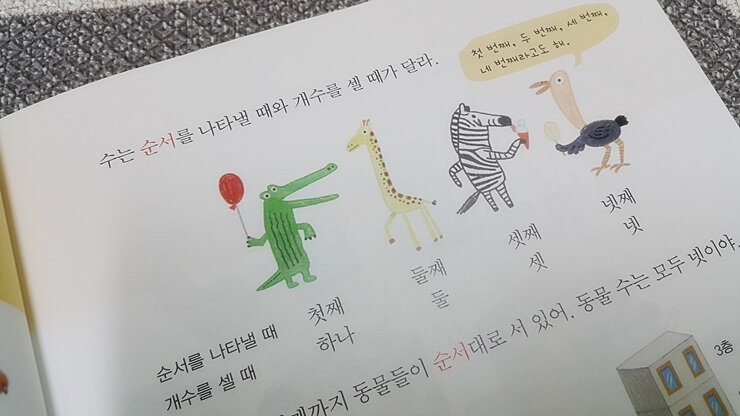 첫 번째, 두 번째, 세 번째,
네 번째라고도 해.
수는 순서를 나타낼 때와 개수를 셀 때가 달라.
순서를 나타낼 때 첫째 둘째 셋째 넷째
개수를 셀 때 하나 둘 셋 넷
까지 동물들이 순서대로 서 있어. 동물 수는 모두 넷이야.
3층